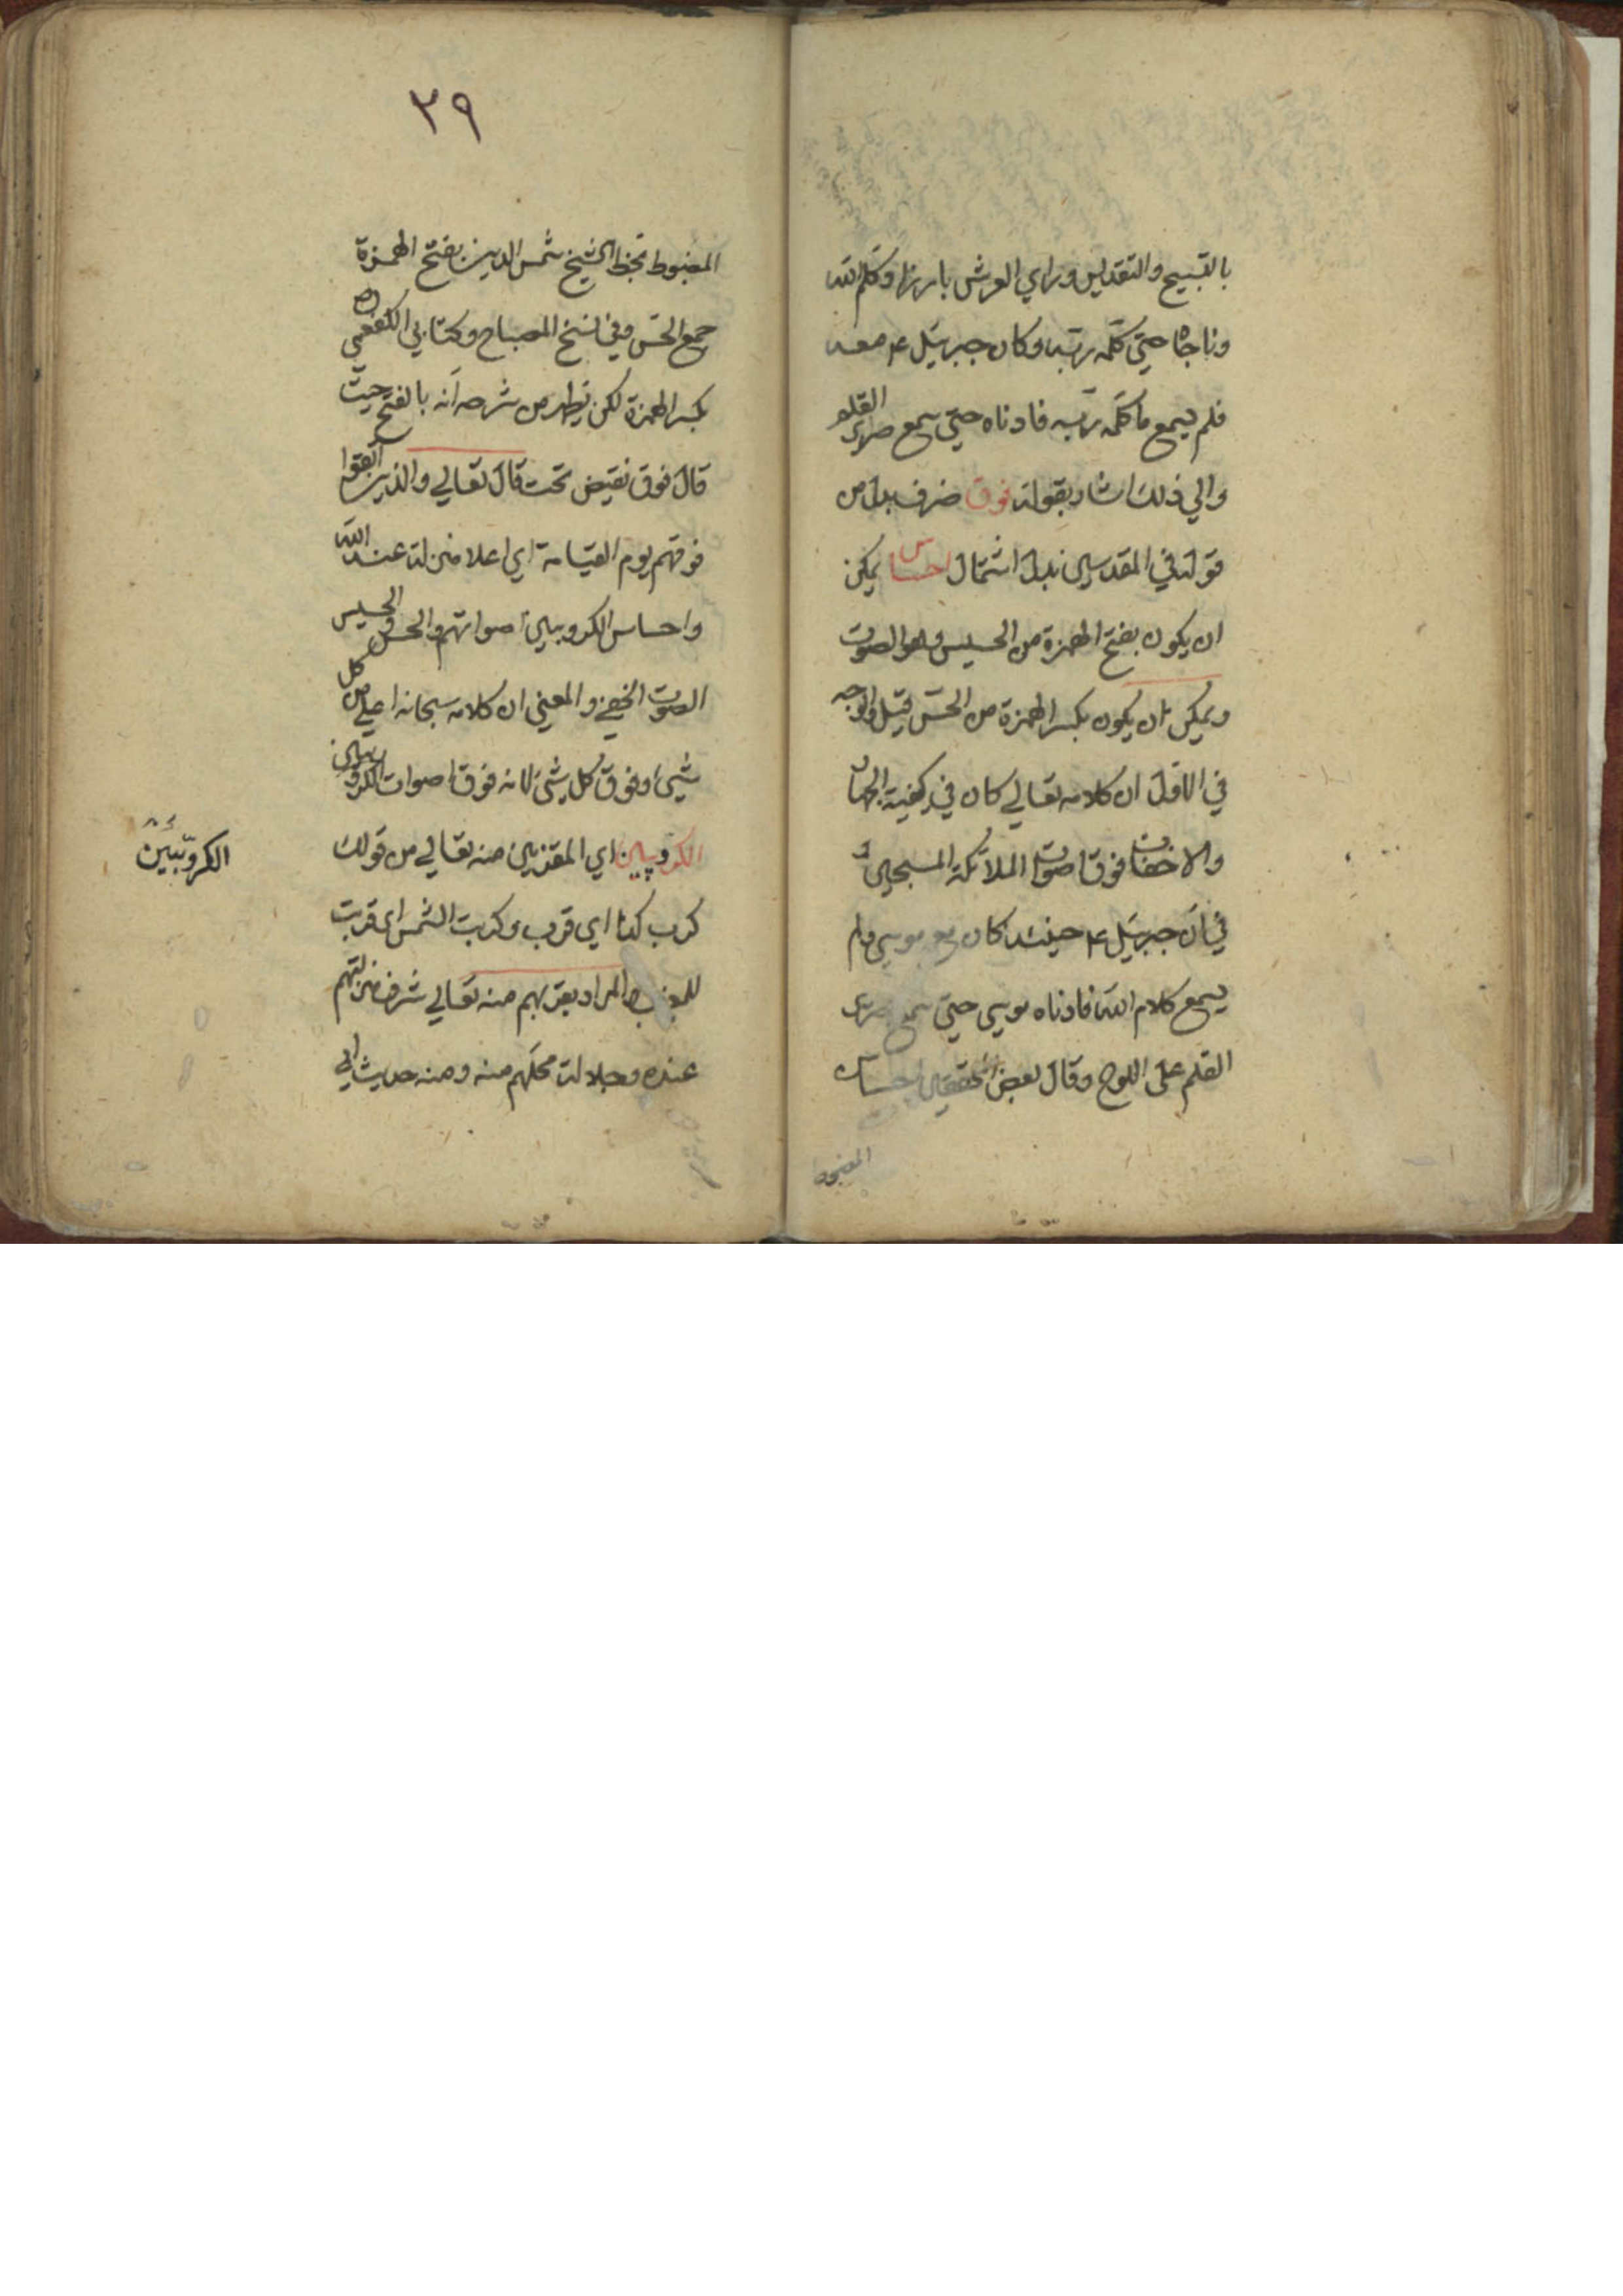 بالتسبيح والتقديس وراي العرش بارزا وكلم الله
وناجاه حتي كلمه ربه وكان جبرئيل ۴ معه
فلم يسمع ما كلمه ربه فادناه حتي سمع صرير القلم
والي ذلك اشار بقوله فوق ضرف بدل من
قوله في المقدسين بدل اشتمال احساس يمكن
ان يكون بفتح الهمزة من الحسيس وهو الصوت
ويمكن ان يكون بكسر الهمزة من الحس قيل والوجه
في الاول ان كلامه تعالي كان في كيفية الجهات
والاخفات فوق اصوات الملائكة المسبحين
في ان جبرئيل ۴ حينئذ كان مع موسي ولم
يسمع كلام الله فادناه موسي حتي سمع صرير
القلم على اللوح وقال بعض المحققين احساس
المضبوط
٣٩
المضبوط بخط الشيخ شمس الدين بفتح الهمزة
جمع الحس وفي نسخ المصباح وكتابي الكفعمي ره
بكسر الهمزة لكن يظهر من شرحه انه بالفتح حيث
قال فوق نقيض تحت قال تعالي والذين اتقوا
فوقهم يوم القيامة اي اعلا منزلة عند الله
واحساس الكروبين اصواتهم والحس والحسيس
الصوت الخفي والمعني ان كلامه سبحانه اعلي من كل
شيئ وفوق كل شئ لانه فوق اصوات الكروبين
الكروبين اي المقربين منه تعالي من قولك
كرب كذا اي قرب وكربت الشمس اي قربت
للمغيب والمراد بقربهم منه تعالي شرف منزلتهم
عنده وجلالة محلهم منه ومنه حديث ابي
الكروبّيين